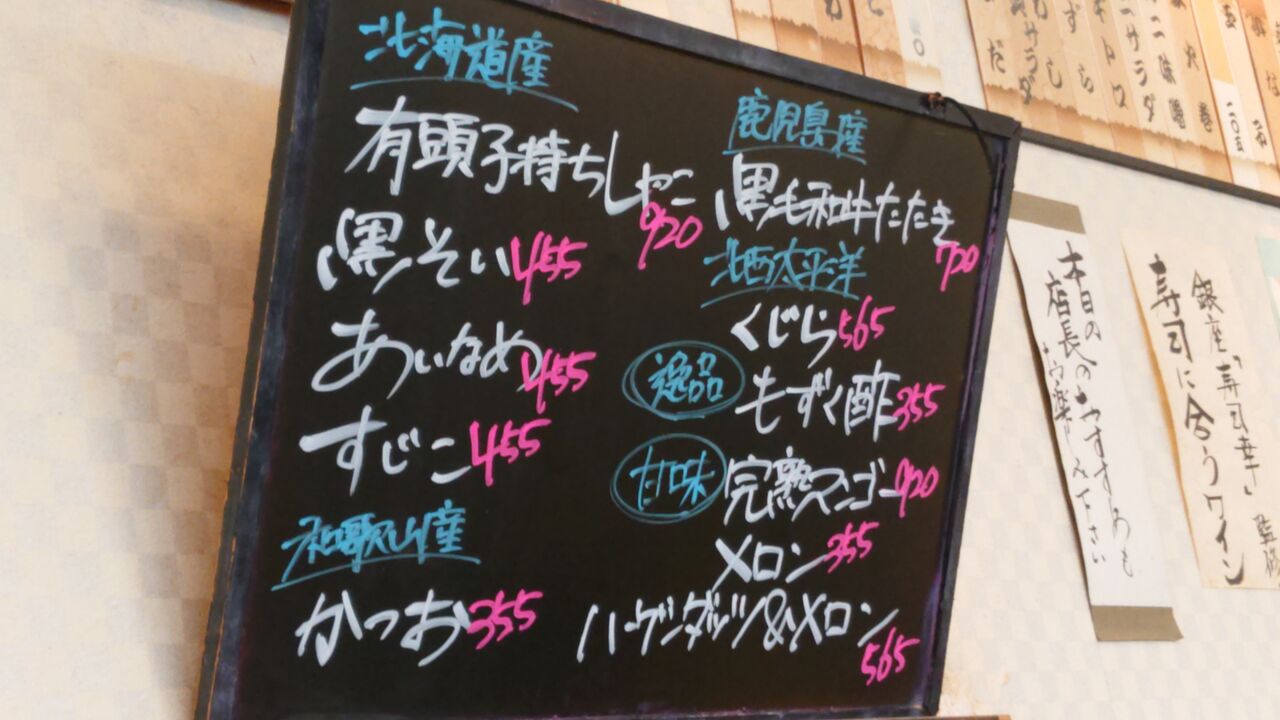 北海道産
有頭子持ちしゃこ
920
黒そい 455
あいなめ 455
すじこ 455
和歌山産
かつお 355
鹿児島産
黒毛和牛たたき
720
北西太平洋
くじら 565
逸品 もずく酢 355
甘味 完熟マンゴー 920
メロン 355
ハーゲンダッツ&メロン
565
本日の
店長のおすすめも
お楽しみ下さい
銀座「寿司幸」監修
寿司に合うワイン